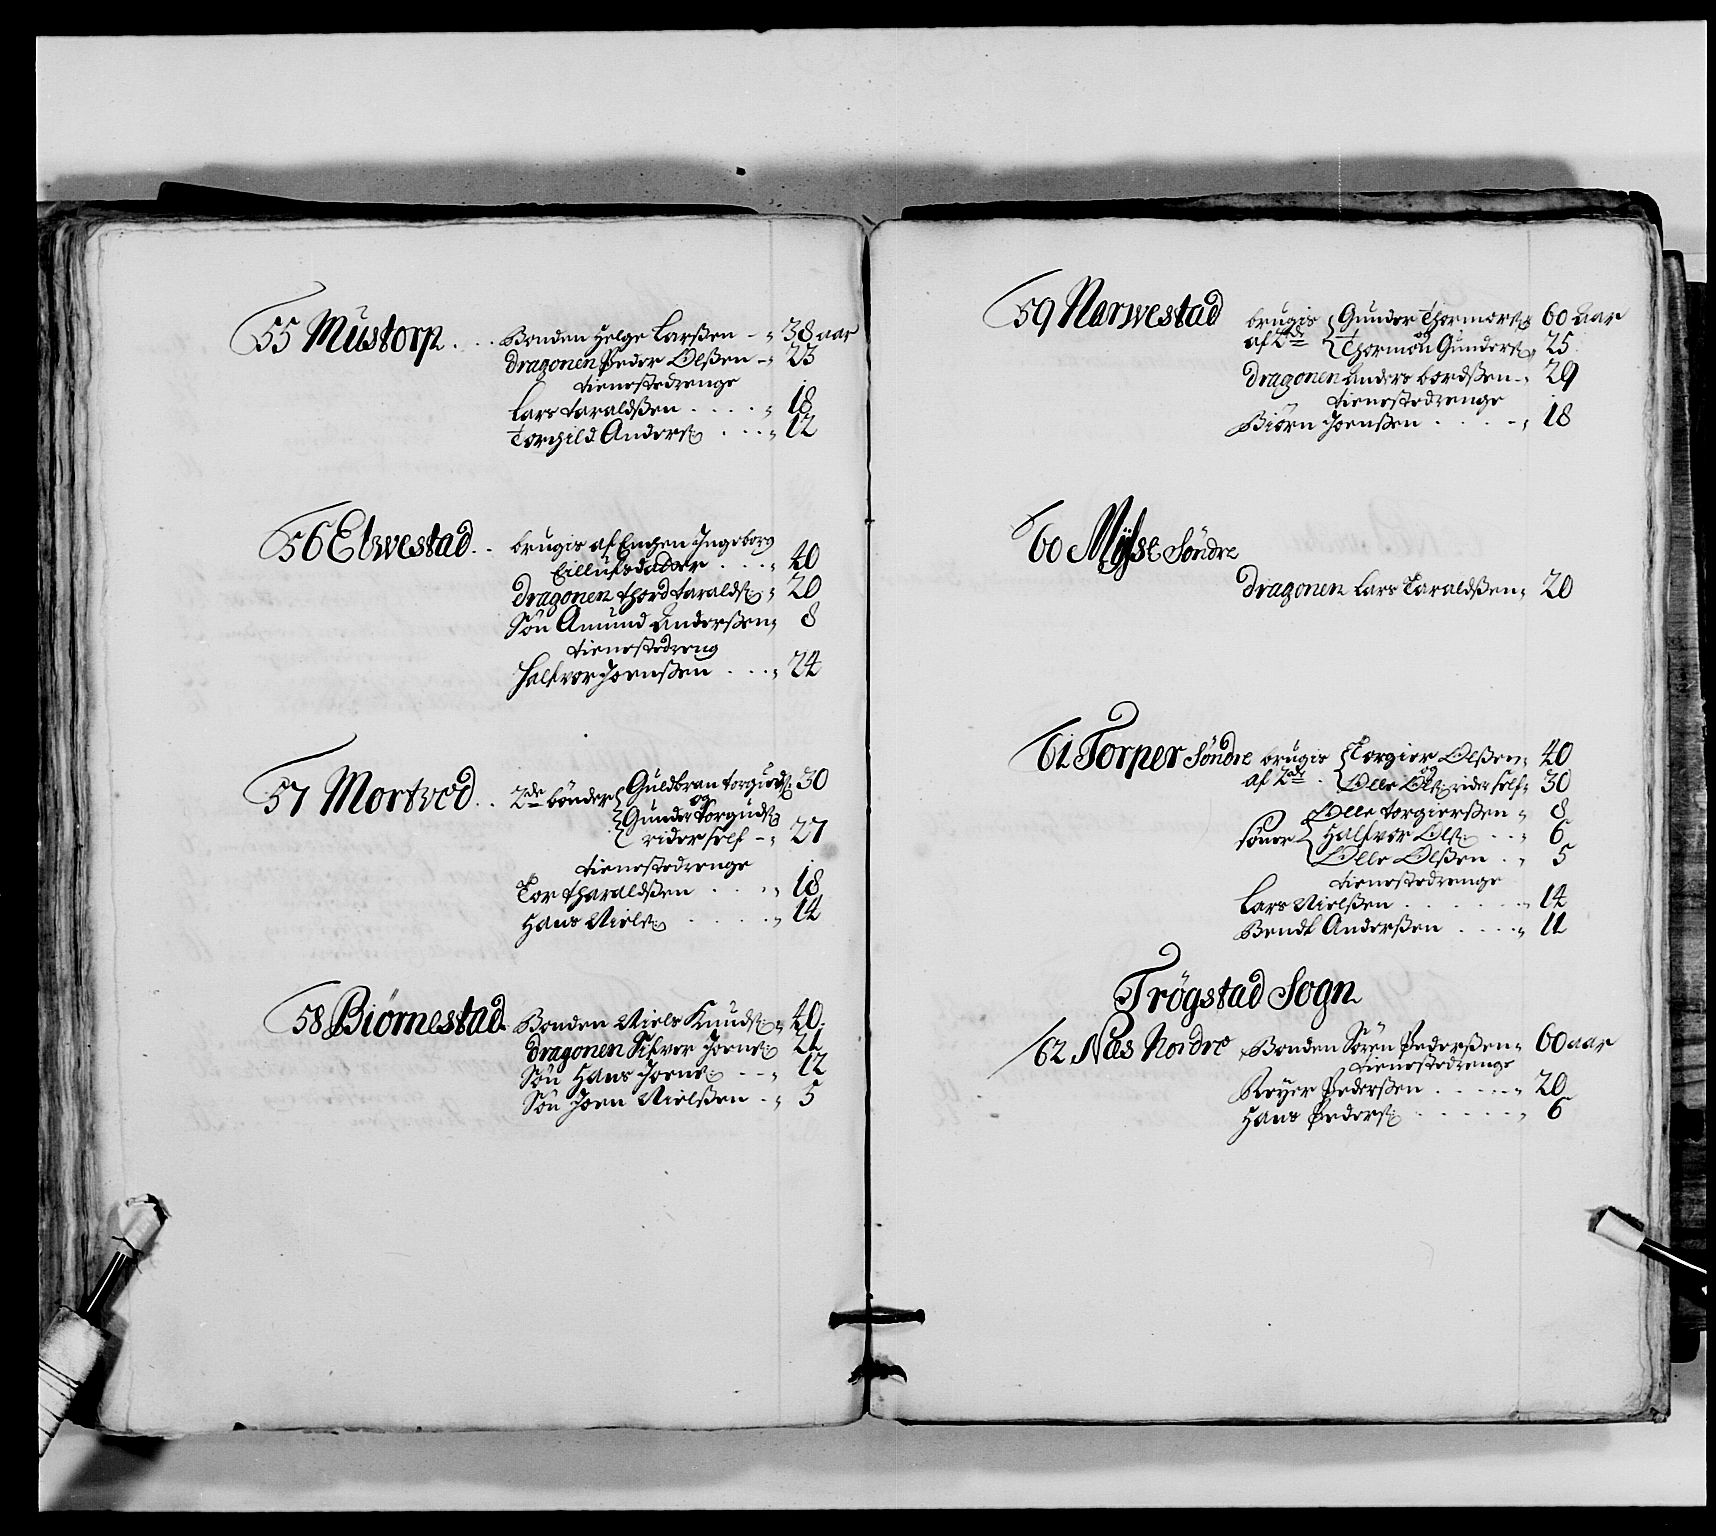 55 Mustorp . . . Bonden Helge Larßen - „ 38 aar
dragonen Peder Olßen - „ 23
tienestedrenge
Lars taraldßen . . . . „ 18
Torgild Anders: . . . „ 12
56 Elwestad . . brugis af Engen Ingeborg
Eillufsdatter . . . „ 40
dragonen thord taralds: „ 20
Søn Amund Anderßen „ 8
tienestedreng
Halfvor Joenßen . . . „ 24
57 Mortved . . 2de bønder Guldbran torguds: 30
og
Gunder Torguds:
rider self - „ 27
tienestedrenge
Tor tharaldßen . . . „ 18
Hans Niels: . . . . . „ 14
58 Biørnestad . Bonden Niels Knuds: „ 40
dragonen Silvor Joens: 21
Søn Hans Joens: - - „ 12
Søn Joen Nielßen - „ 5
59 Narwestad brugis Gunder Thormors: 60 aar
af 2de og
Thormou Gunders: „ 25
dragonen Anders bordßen - „ 29
tienestedrenge
Biørn Joenßen . . . . - „ 18
60 Mÿhse Søndre
dragonen Lars Taraldßen „ 20
61 Torper Søndre brugis Torgier Olßen „ 40
af 2de . og
Olle Ols: rider self „ 30
Olle torgierßen „ 8
søner Halfvor Ols: . . „ 6
Olle Olßen . „ 5
tienestedrenge
Lars Nielßen . . . . . . „ 14
Bendt Anderßen . . . . „ 11
Trøgstad Sogn
62 Næs Nordre Bonden Søren Pederßen „ 60 aar
tienestedrenge
Reyer Pederßen . . . . . „ 20
Hans Peders: . . . . . . „ 6